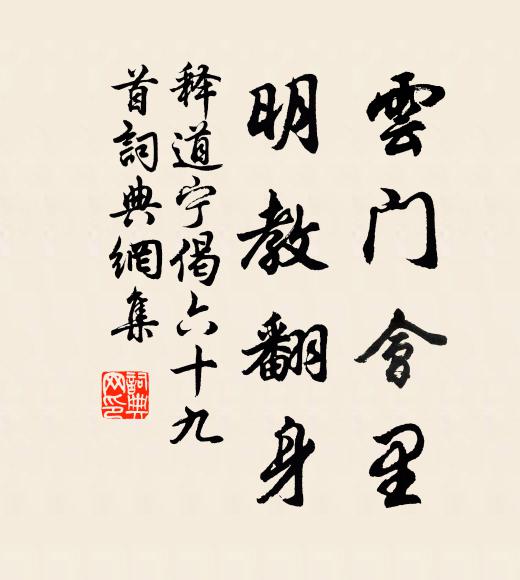 雲门會里
明教翻身
释道宁偈六十九
首詞典網集
詞典網印